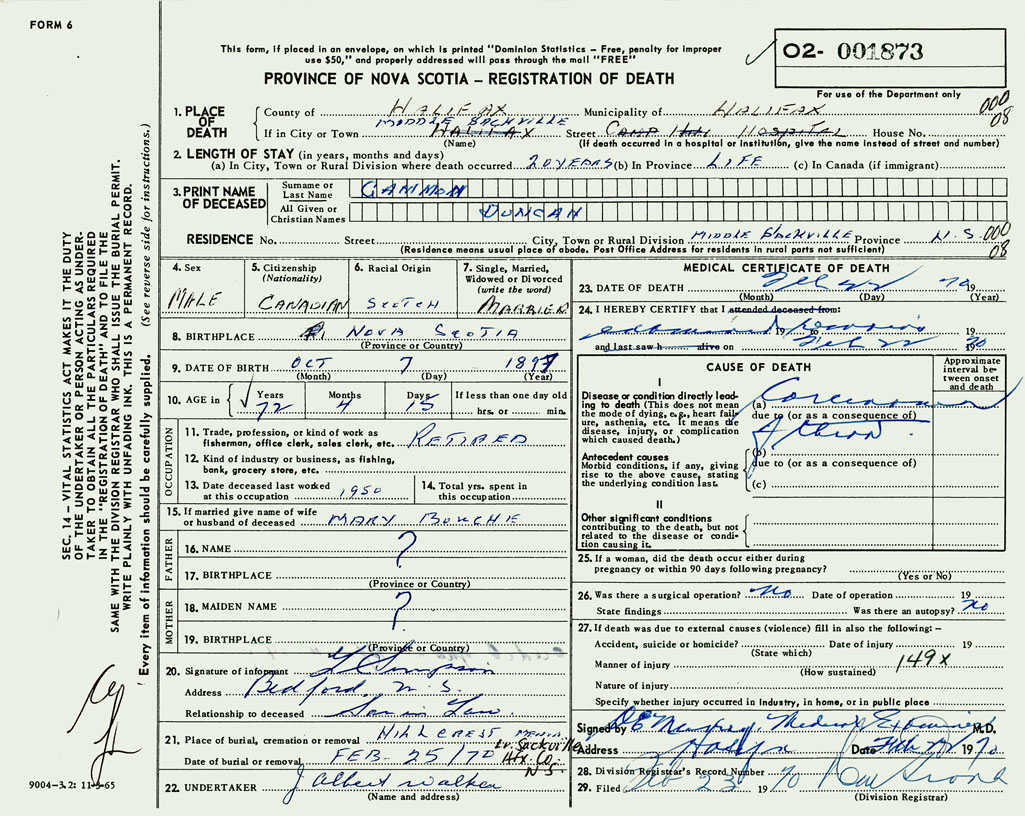 FORM 6
This form, if placed in an envelope, on which is printed "Dominion Statistics – Free, penalty for improper
use $50," and properly addressed will pass through the mail "FREE"
PROVINCE OF NOVA SCOTIA – REGISTRATION OF DEATH
02- 001873
For use of the Department only
000
08
1. PLACE OF DEATH
County of HALIFAX Municipality of HALIFAX
MIDDLE SACKVILLE
If in City or Town HALIFAX Street CAMP HILL HOSPITAL House No.
(Name) (If death occurred in a hospital or institution, give the name instead of street and number)
2. LENGTH OF STAY (in years, months and days)
(a) In City, Town or Rural Division where death occurred 20 YEARS (b) In Province LIFE (c) In Canada (if immigrant)
3. PRINT NAME OF DECEASED
Surname or Last Name GAMMON
All Given or Christian Names DUNCAN
RESIDENCE No. Street City, Town or Rural Division MIDDLE SACKVILLE Province N.S. 000
08
(Residence means usual place of abode. Post Office Address for residents in rural parts not sufficient)
4. Sex
MALE
5. Citizenship (Nationality)
CANADIAN
6. Racial Origin
SCOTCH
7. Single, Married, Widowed or Divorced (write the word)
MARRIED
8. BIRTHPLACE NOVA SCOTIA
(Province or Country)
9. DATE OF BIRTH OCT 7 1897
(Month) (Day) (Year)
10. AGE in Years Months Days If less than one day old
72 4 15 hrs. or min.
OCCUPATION
11. Trade, profession, or kind of work as RETIRED
fisherman, office clerk, sales clerk, etc.
12. Kind of industry or business, as fishing,
bank, grocery store, etc.
13. Date deceased last worked at this occupation 1950
14. Total yrs. spent in this occupation
15. If married give name of wife or husband of deceased MARY BOUCHIE
FATHER
16. NAME ?
17. BIRTHPLACE
(Province or Country)
MOTHER
18. MAIDEN NAME ?
19. BIRTHPLACE
(Province or Country)
20. Signature of informant Simpson
Address Bedford, N.S.
Relationship to deceased Son in Law.
21. Place of burial, cremation or removal HILLCREST
Lr. Sackville
Date of burial or removal FEB 25/70 Hfx. Co.
N S
22. UNDERTAKER J Albert Walker
(Name and address)
MEDICAL CERTIFICATE OF DEATH
23. DATE OF DEATH Feb 22 1970
(Month) (Day) (Year)
24. I HEREBY CERTIFY that I attended deceased from:
examined 19 to remains 19
and last saw h alive on Feb 22 1970
CAUSE OF DEATH
Approximate interval between onset and death
I
Disease or condition directly leading to death (This does not mean the mode of dying, e.g., heart failure, asthenia, etc. It means the disease, injury, or complication which caused death.)
(a) Carcinoma
due to (or as a consequence of)
Antecedent causes
Morbid conditions, if any, giving rise to the above cause, stating the underlying condition last.
(b)
due to (or as a consequence of)
(c)
II
Other significant conditions
contributing to the death, but not related to the disease or condition causing it.
25. If a woman, did the death occur either during
pregnancy or within 90 days following pregnancy?
(Yes or No)
26. Was there a surgical operation? No Date of operation 19
State findings Was there an autopsy? No
27. If death was due to external causes (violence) fill in also the following: –
Accident, suicide or homicide? Date of injury 19
(State which)
Manner of injury 149X
(How sustained)
Nature of injury
Specify whether injury occurred in industry, in home, or in public place
Signed by Medical Examiner M.D.
Address Date Feb 1970
28. Division Registrar's Record Number
29. Filed Feb 23 1970
(Division Registrar)
SEC. 14 – VITAL STATISTICS ACT MAKES IT THE DUTY
OF THE UNDERTAKER OR PERSON ACTING AS UNDER-
TAKER TO OBTAIN ALL THE PARTICULARS REQUIRED
IN THE "REGISTRATION OF DEATH" AND TO FILE THE
SAME WITH THE DIVISION REGISTRAR WHO SHALL ISSUE THE BURIAL PERMIT.
WRITE PLAINLY WITH UNFADING INK. THIS IS A PERMANENT RECORD.
Every item of information should be carefully supplied. (See reverse side for instructions.)
9004-3.2: 11-5-65